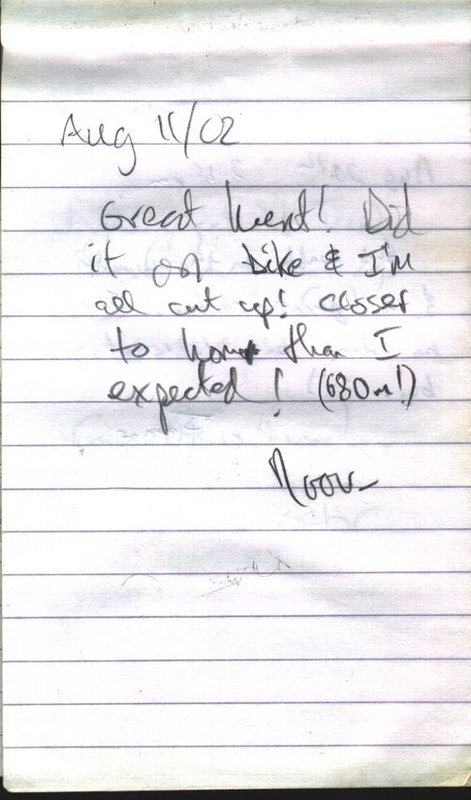 Aug 11/02
Great hunt! Did
it on bike & I'm
all cut up! closer
to home than I
expected! (680m!)